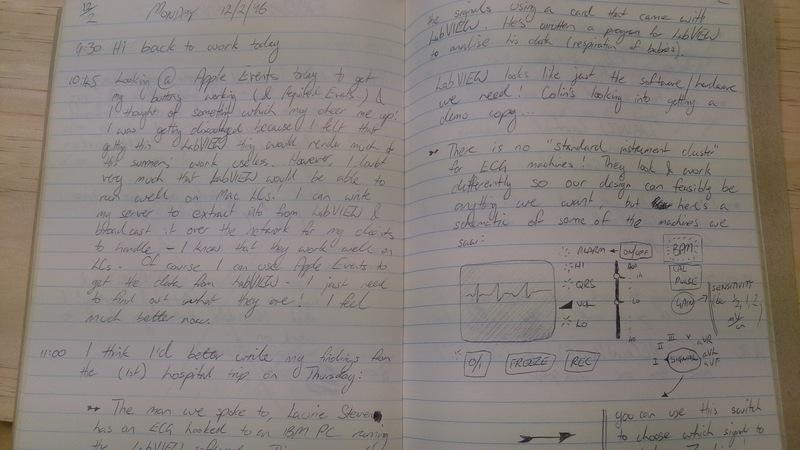 12/2 Monday 12/2/96
9:30 Hi back to work today
10:45 Looking @ Apple Events today to get
my buttons working (& required Events.) &
I thought of something which may cheer me up!
I was getting discouraged because I felt that
getting this LabVIEW thing would render much of
the summers' work useless. However, I doubt
very much that LabVIEW would be able to
run well on Mac LCs. I can write
my server to extract info from LabVIEW &
broadcast it over the network for my clients
to handle - I know that they work well on
LCs. Of course I can use Apple Events to
get the data from LabVIEW - I just need
to find out what they are! I feel
much better now.
11:00 I think I'd better write my findings from
the (1st) hospital trip on Thursday:
** The man we spoke to, Laurie Steven
has an ECG hooked to an IBM PC running
the LabVIEW software.
signals using a card that came with
LabVIEW. He's written a program for LabVIEW
to analise his data (respiration of babies).
LabVIEW looks like just the software/hardware
we need! Colin's looking into getting a
demo copy...
** There is no "standard instrument cluster"
for ECG machines! They look & work
differently so our design can feasibly be
anything we want, but here's a
schematic of some of the machines we
saw:
ALARM ON/OFF BPM
HI
QRS
VOL
LO
CAL PULSE
GAIN
SENSITIVITY
1/2, 1, 2
mV/cm
O/I FREEZE REC
I II III V aVR aVL aVF
SIGNAL
you can use this switch
to choose which signal to